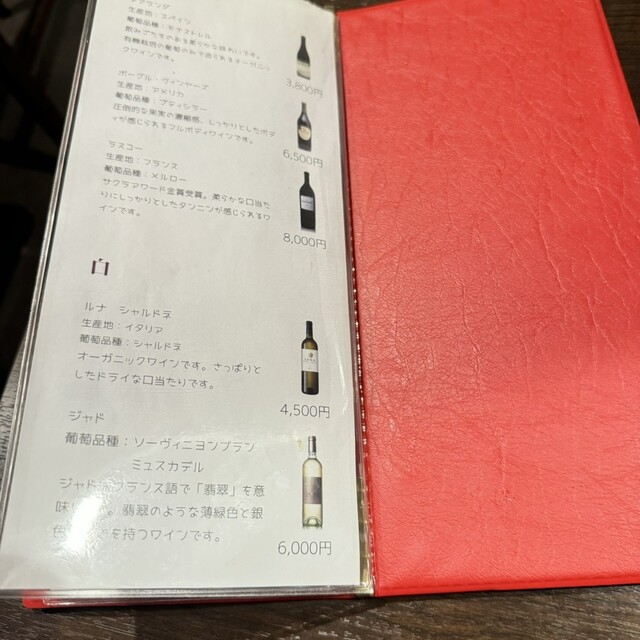 生産地：スペイン
葡萄品種：モナストレル
クワインです。
3,800円
ボーグル・ヴィンヤーズ
生産地：アメリカ
葡萄品種：プティシラー
圧倒的な果実の凝縮感、しっかりとしたボデ
ィが感じられるフルボディワインです。
6,500円
ラスコー
生産地：フランス
葡萄品種：メルロー
サクラアワード金賞受賞。柔らかな口当た
りにしっかりとしたタンニンが感じられるワ
インです。
8,000円
白
ルナ シャルドネ
生産地：イタリア
葡萄品種：シャルドネ
オーガニックワインです。さっぱりと
したドライな口当たりです。
4,500円
ジャド
葡萄品種：ソーヴィニヨンブラン
ミュスカデル
ジャド フランス語で「翡翠」を意
味 。翡翠のような薄緑色と銀
色 を持つワインです。
6,000円